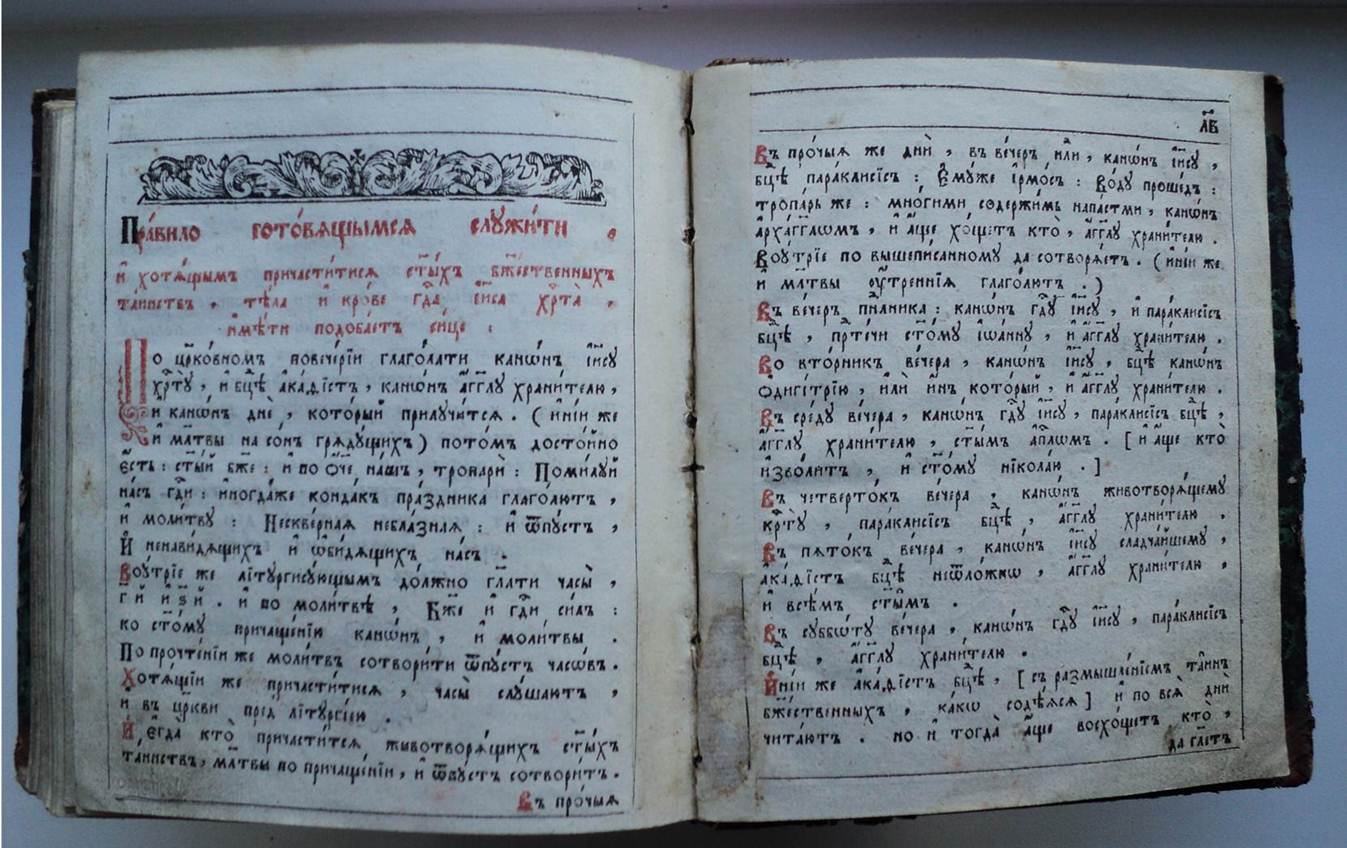 Пра́вило гото́вѧщымсѧ слꙋжи́ти ,
и҆ хотѧ́щымъ причасти́тисѧ ст҃ы́хъ бж҃е́ственныхъ
та́инствъ , тѣ́ла и҆ кро́ве гд҇а і҆и҃са хрⷭ҇та̀ ,
и҆мѣ́ти подоба́етъ си́це :
По цр҃ко́вномъ повече́рїи глаго́лати канѡ́нъ і҆и҃сꙋ
хрⷭ҇тꙋ̀ , и҆ бцⷣѣ а҆ка́ѳїстъ , канѡ́нъ а҆́гг҃лꙋ храни́телю ,
и҆ канѡ́нъ днѐ , кото́рый прилꙋчи́тсѧ . ( и҆ні́и же
и҆ мл҃твы на со́нъ грѧдꙋ́щихъ ) пото́мъ досто́йно
є҆́сть : ст҃ы́й бж҃е : и҆ по о҆́ч҃е на́шъ , тропарѝ : Поми́лꙋй
на́съ гдⷭ҇и : и҆ногда́же конда́къ пра́здника глаго́лютъ ,
и҆ моли́твꙋ : Нескве́рнаѧ небла́знаѧ : и҆ ѿпꙋ́стъ ,
И҆ ненави́дѧщихъ и҆ ѡ҆би́дѧщихъ на́съ .
Воꙋ́трїе же лїтꙋргисꙋ́ющымъ до́лжно гл҃ати часы̀ ,
г҃й и҆ ѕ҃й . и҆ по моли́твѣ , Бж҃е и҆ гдⷭ҇и си́лъ :
ко ст҃о́мꙋ причаще́нїю канѡ́нъ , и҆ моли́твы .
По прочте́нїи же моли́твъ сотвори́ти ѿпꙋ́стъ часѡ́въ .
Хотѧ́щїи же причасти́тисѧ , часы̀ слꙋ́шаютъ ,
и҆ въ цр҃кви пред лїтꙋргі́ею .
И҆ є҆гда̀ кто̀ причасти́тсѧ животворѧ́щихъ ст҃ы́хъ
та́инствъ , мл҃твы по причаще́нїи , и҆ ѿпꙋ́стъ сотвори́тъ .
Въ про́чыѧ
л҃в
Въ про́чыѧ же днѝ , въ ве́черъ нⷣли , канѡ́нъ і҆и҃сꙋ ,
бцⷣѣ пара́клисїсъ : Е҆мꙋже і҆рмо́съ : Во́дꙋ проше́дъ :
тропа́рь же : мно́гими содержи́мь напа́стми , канѡ́нъ
а҆рха́гг҃лѡмъ , и҆ а҆́ще хо́щетъ кто̀ , а҆́гг҃лꙋ храни́телю .
Воꙋ́трїе по вышеписанномꙋ да сотворѧ́етъ . ( и҆ні́и же
и҆ мл҃твы ᲂу҆́треннїѧ глаго́лютъ . )
Въ ве́черъ пнⷣе́лника : канѡ́нъ гдⷭ҇ꙋ і҆и҃сꙋ , и҆ пара́клисїсъ
бцⷣѣ , прⷣте́чи ст҃о́мꙋ і҆ѡа́ннꙋ , и҆ а҆́гг҃лꙋ храни́телю .
Во вто́рникъ ве́чера , канѡ́нъ і҆и҃сꙋ , бцⷣѣ канѡ́нъ
ѻ҆диги́трїю , и҆лѝ и҆́нъ кото́рый , и҆ а҆́гг҃лꙋ храни́телю .
Въ сре́дꙋ ве́чера , канѡ́нъ гдⷭ҇ꙋ і҆и҃сꙋ , пара́клисїсъ бцⷣѣ ,
а҆́гг҃лꙋ храни́телю , ст҃ы́мъ а҆пⷭ҇лѡмъ . [ и҆ а҆́ще кто̀
и҆зво́литъ , и҆ ст҃о́мꙋ нїкола́ю . ]
Въ четверто́къ ве́чера , канѡ́нъ животворѧ́щемꙋ
крⷭ҇тꙋ̀ , пара́клисїсъ бцⷣѣ , а҆́гг҃лꙋ храни́телю .
Въ пѧто́къ ве́чера , канѡ́нъ і҆и҃сꙋ сладча́йшемꙋ ,
а҆ка́ѳїстъ бцⷣѣ неѿло́жнѡ , а҆́гг҃лꙋ храни́телю ,
и҆ всѣ́мъ ст҃ы́мъ .
Въ сꙋббѡ́тꙋ ве́чера , канѡ́нъ гдⷭ҇ꙋ і҆и҃сꙋ , пара́клисїсъ
бцⷣѣ , а҆́гг҃лꙋ храни́телю .
И҆ні́и же а҆ка́ѳїстъ бцⷣѣ , [ съ размышле́нїемъ та́инъ
бж҃е́ственныхъ , ка́кѡ содѣ́ѧсѧ ] и҆ по всѧ̀ днѝ
чита́ютъ . но и҆ тогда̀ а҆́ще восхо́щетъ кто̀ ,
да гл҃етъ